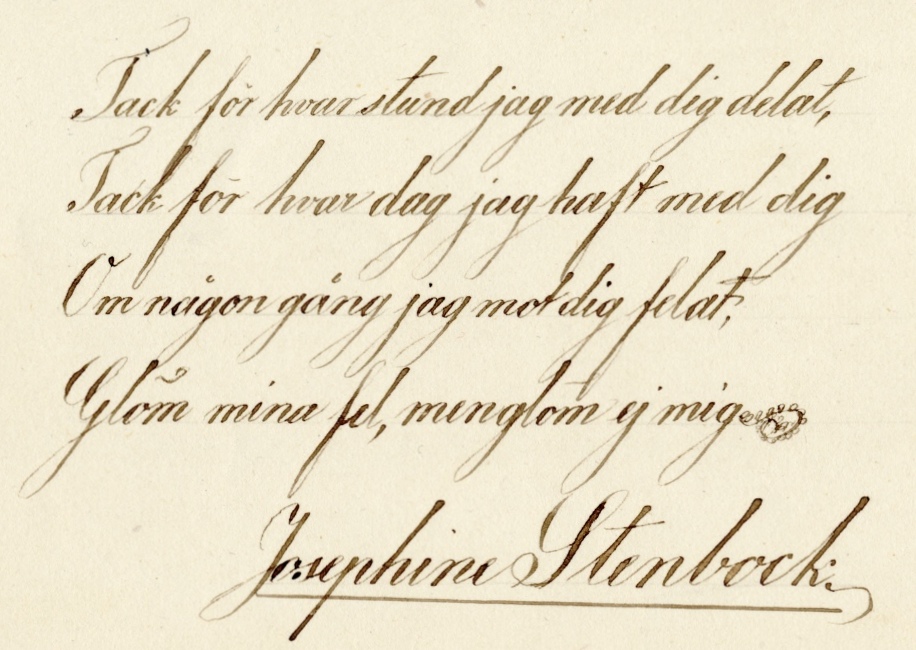 Tack för hvar stund jag med dig delat,
Tack för hvar dag jag haft med dig
Om någon gång jag mot dig felat,
Glöm mina fel, men glöm ej mig
Josephine Stenbock.